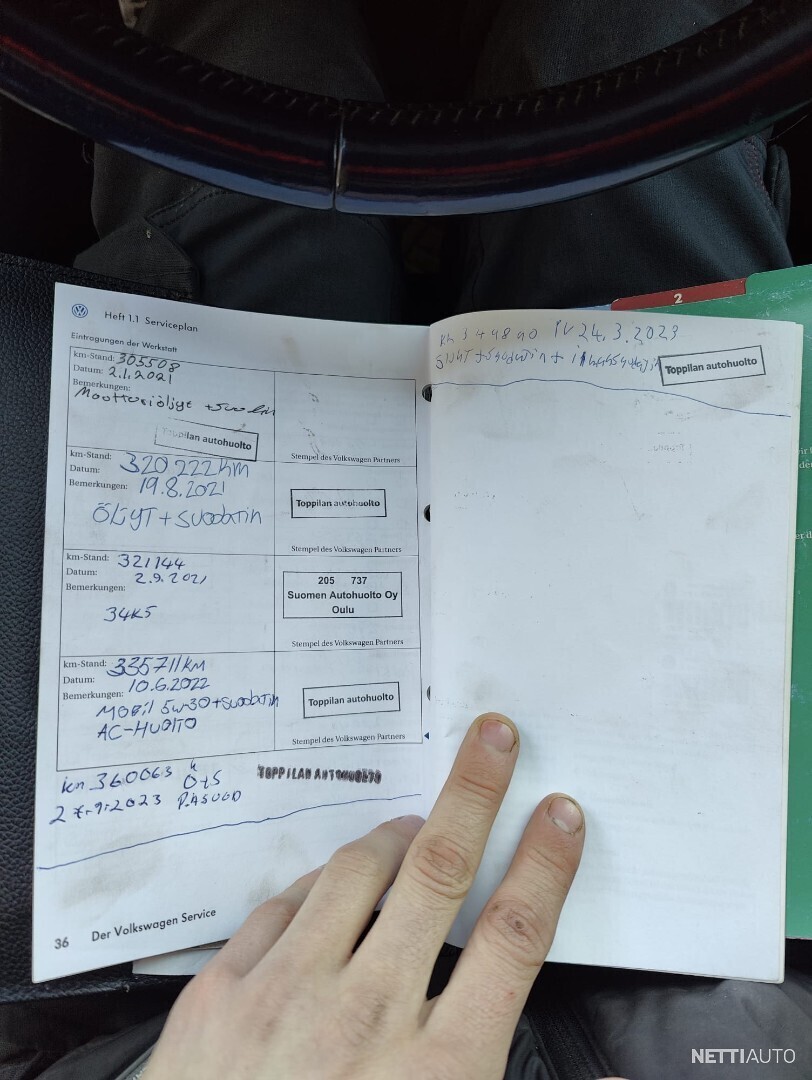 Heft 1.1 Serviceplan
Eintragungen der Werkstatt
km-Stand: 305508
Datum: 2.1.2021
Bemerkungen:
Moottoriöljyt +
Toppilan autohuolto
Stempel des Volkswagen Partners
km-Stand: 320 222 KM
Datum: 19.8.2021
Bemerkungen:
ÖLJYT + SUODATIN
Toppilan autohuolto
Stempel des Volkswagen Partners
km-Stand: 321144
Datum: 2.9.2021
Bemerkungen:
34K5
205 737
Suomen Autohuolto Oy
Oulu
Stempel des Volkswagen Partners
km-Stand: 335711 KM
Datum: 10.6.2022
Bemerkungen:
MOBIL 5W-30 + SUODATIN
AC-HUOLTO
Toppilan autohuolto
Stempel des Volkswagen Partners
km 360063 O+S
.9.2023
TOPPILAN AUTOHUOLTO
36 Der Volkswagen Service
2
24.3.2023
Toppilan autohuolto
NETTIAUTO